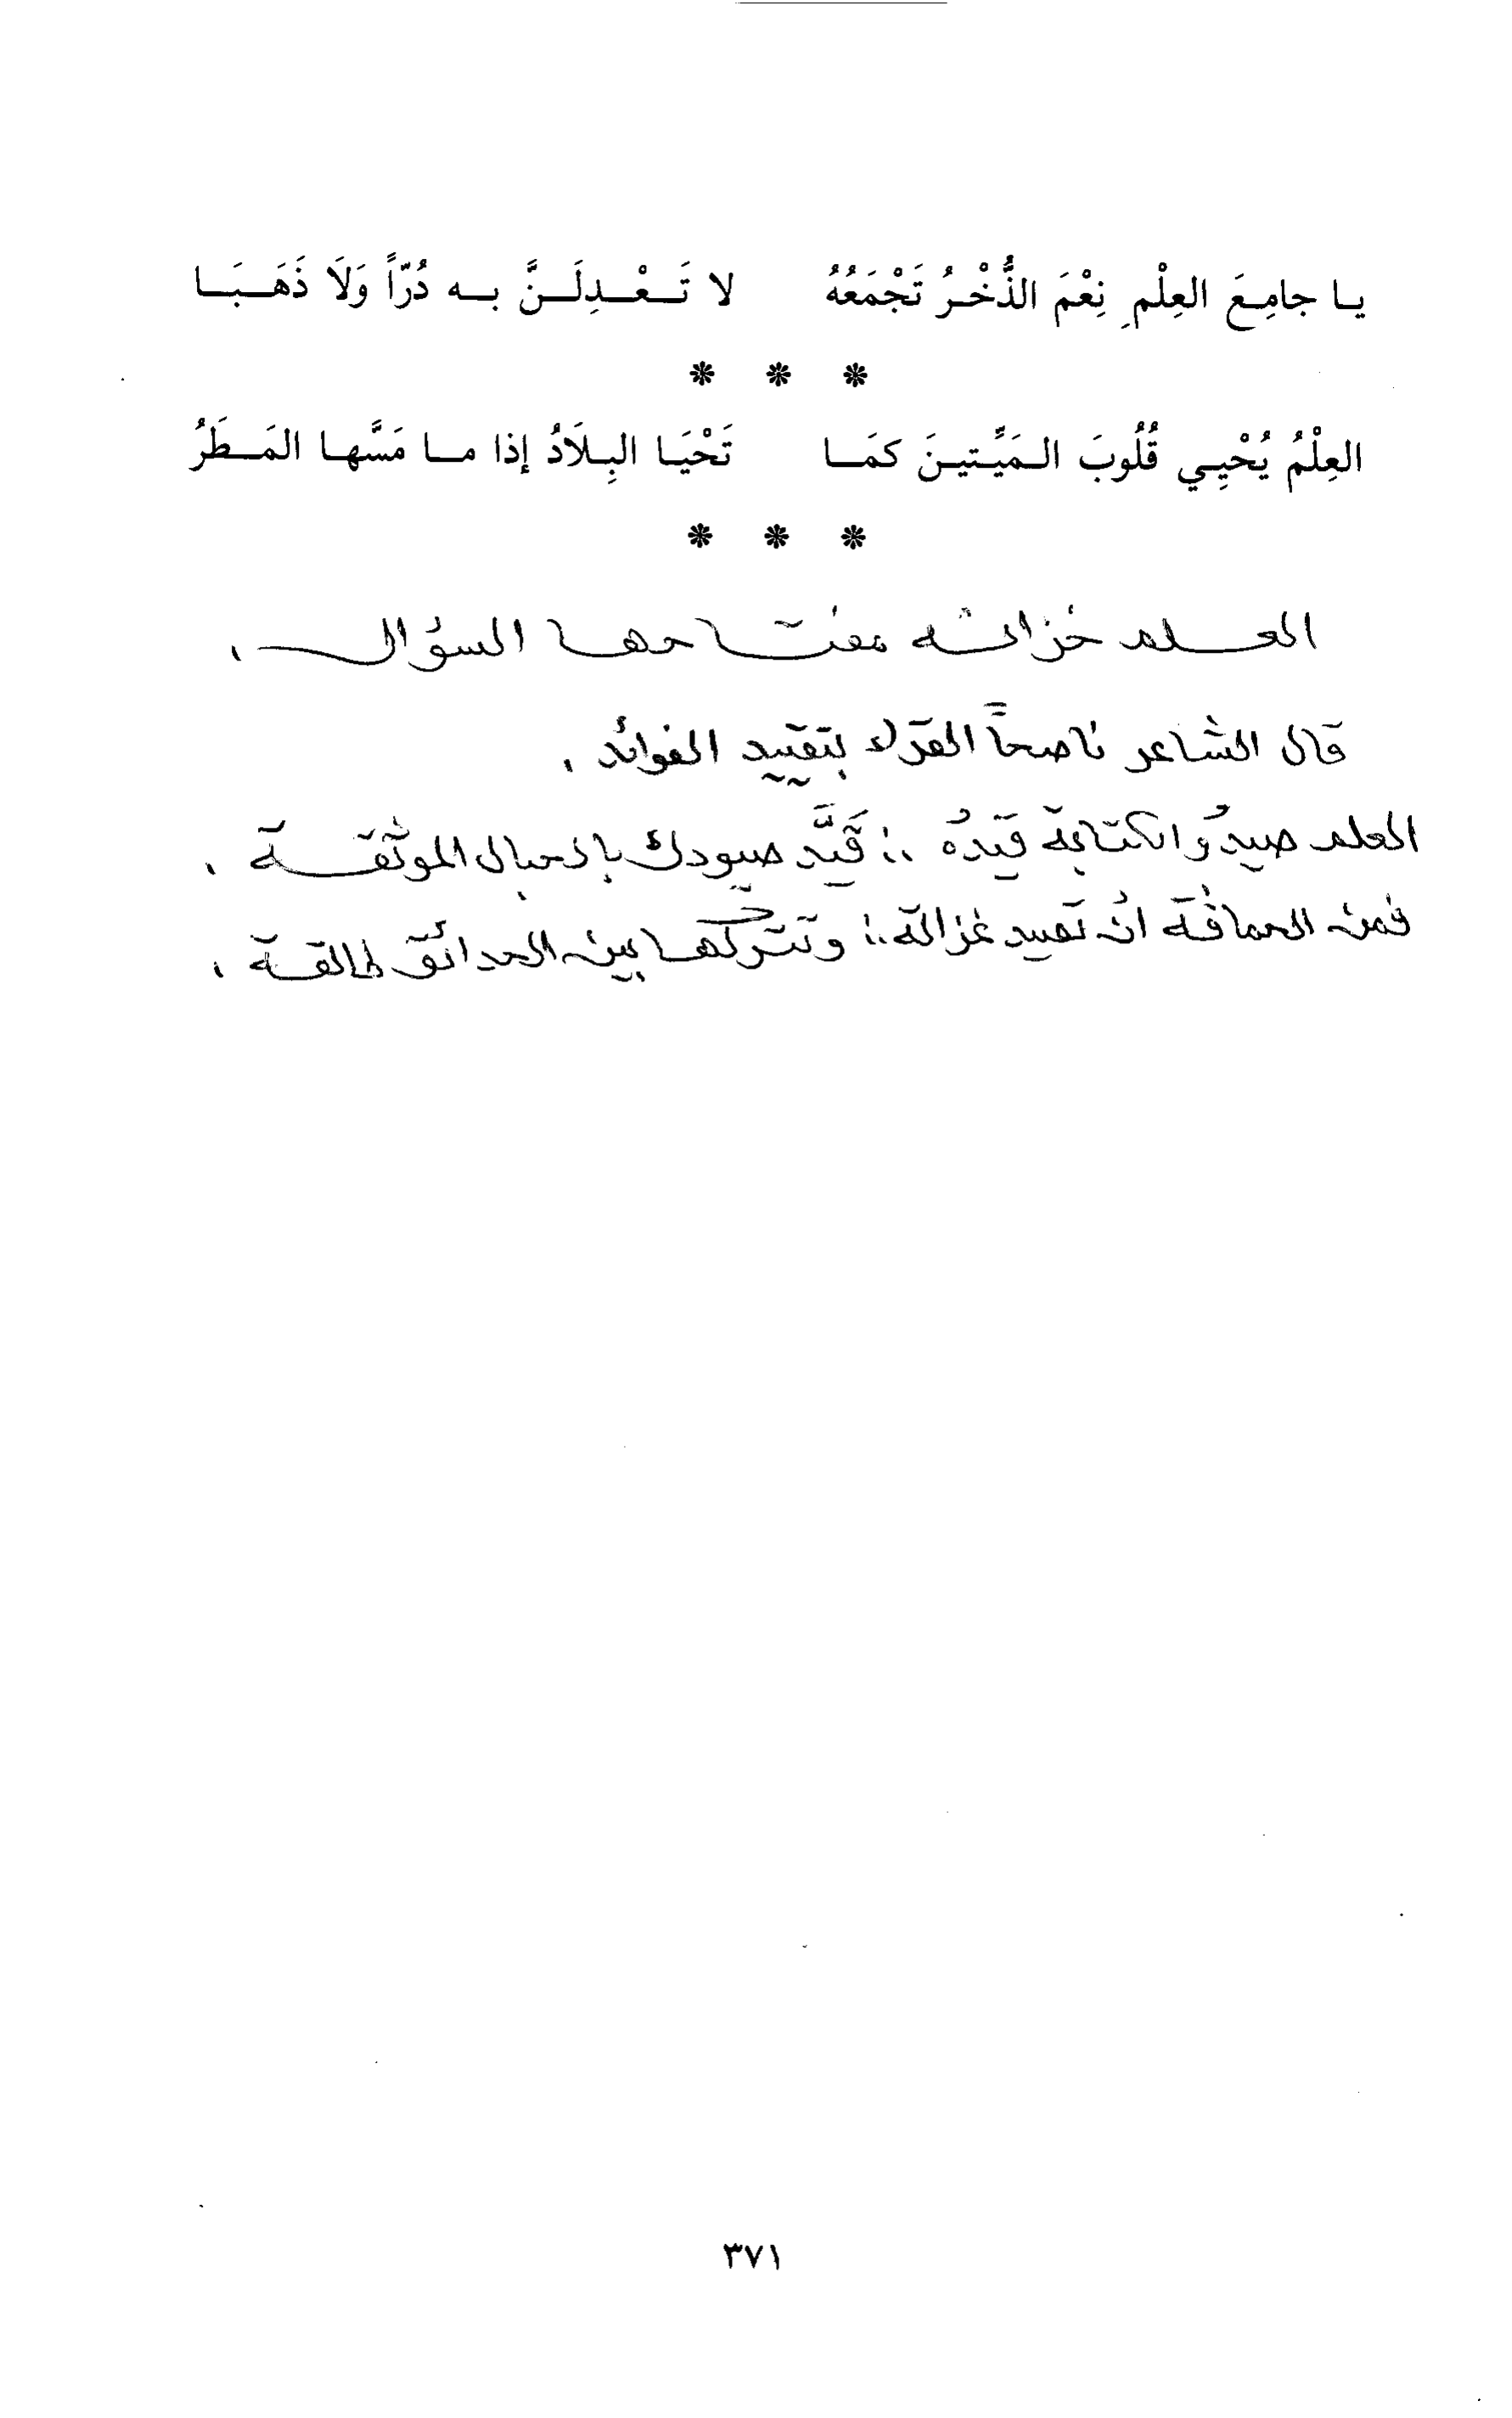 يا جامِعَ العِلْمِ نِعْمَ الذُّخْرُ تَجْمَعُهُ لا تَعْدِلَنَّ به دُرّاً وَلَا ذَهَبَا
* * *
العِلْمُ يُحْيِي قُلُوبَ المَيِّتينَ كمَا تَحْيَا البِلَادُ إذا ما مَسَّها المَطَرُ
* * *
العلم خزانه مفتاحها السؤال .
قال الشاعر ناصحاً القرّاء بتقييد الفوائد .
العلم صيدٌ والكتابة قيدُه .:. قَيِّد صيودك بالحبال الموثقة .
فمن الحماقة ان تصيد غزالة .:. وتتركها بين الحدائق طالقة .
٣٧١